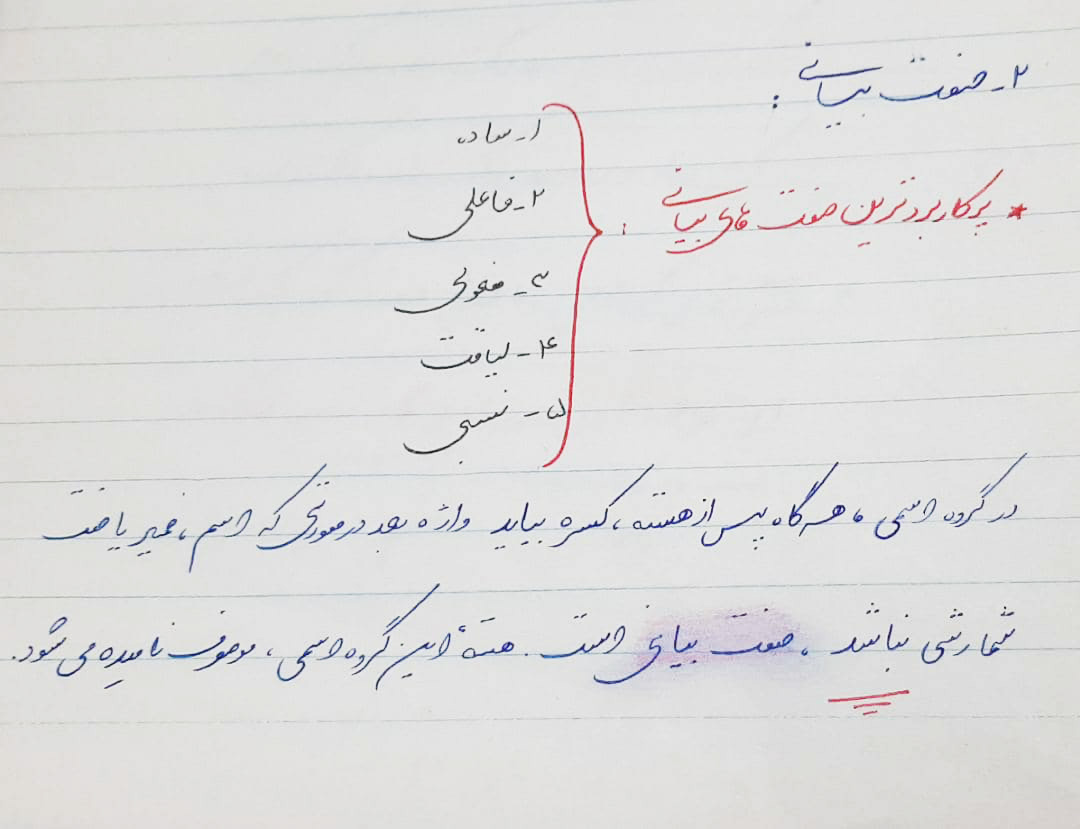 ۲- صفت بیانی :
* پرکاربردترین صفت های بیانی :
۱- ساده
۲- فاعلی
۳- مفعولی
۴- لیاقت
۵- نسبی
در گروه اسمی ، هرگاه پس از هسته ، کسره بیاید واژه بعد در صورتی که اسم ، ضمیر یا صفت
شمارشی نباشد ، صفت بیانی است . هستهٔ این گروه اسمی ، موصوف نامیده می شود .